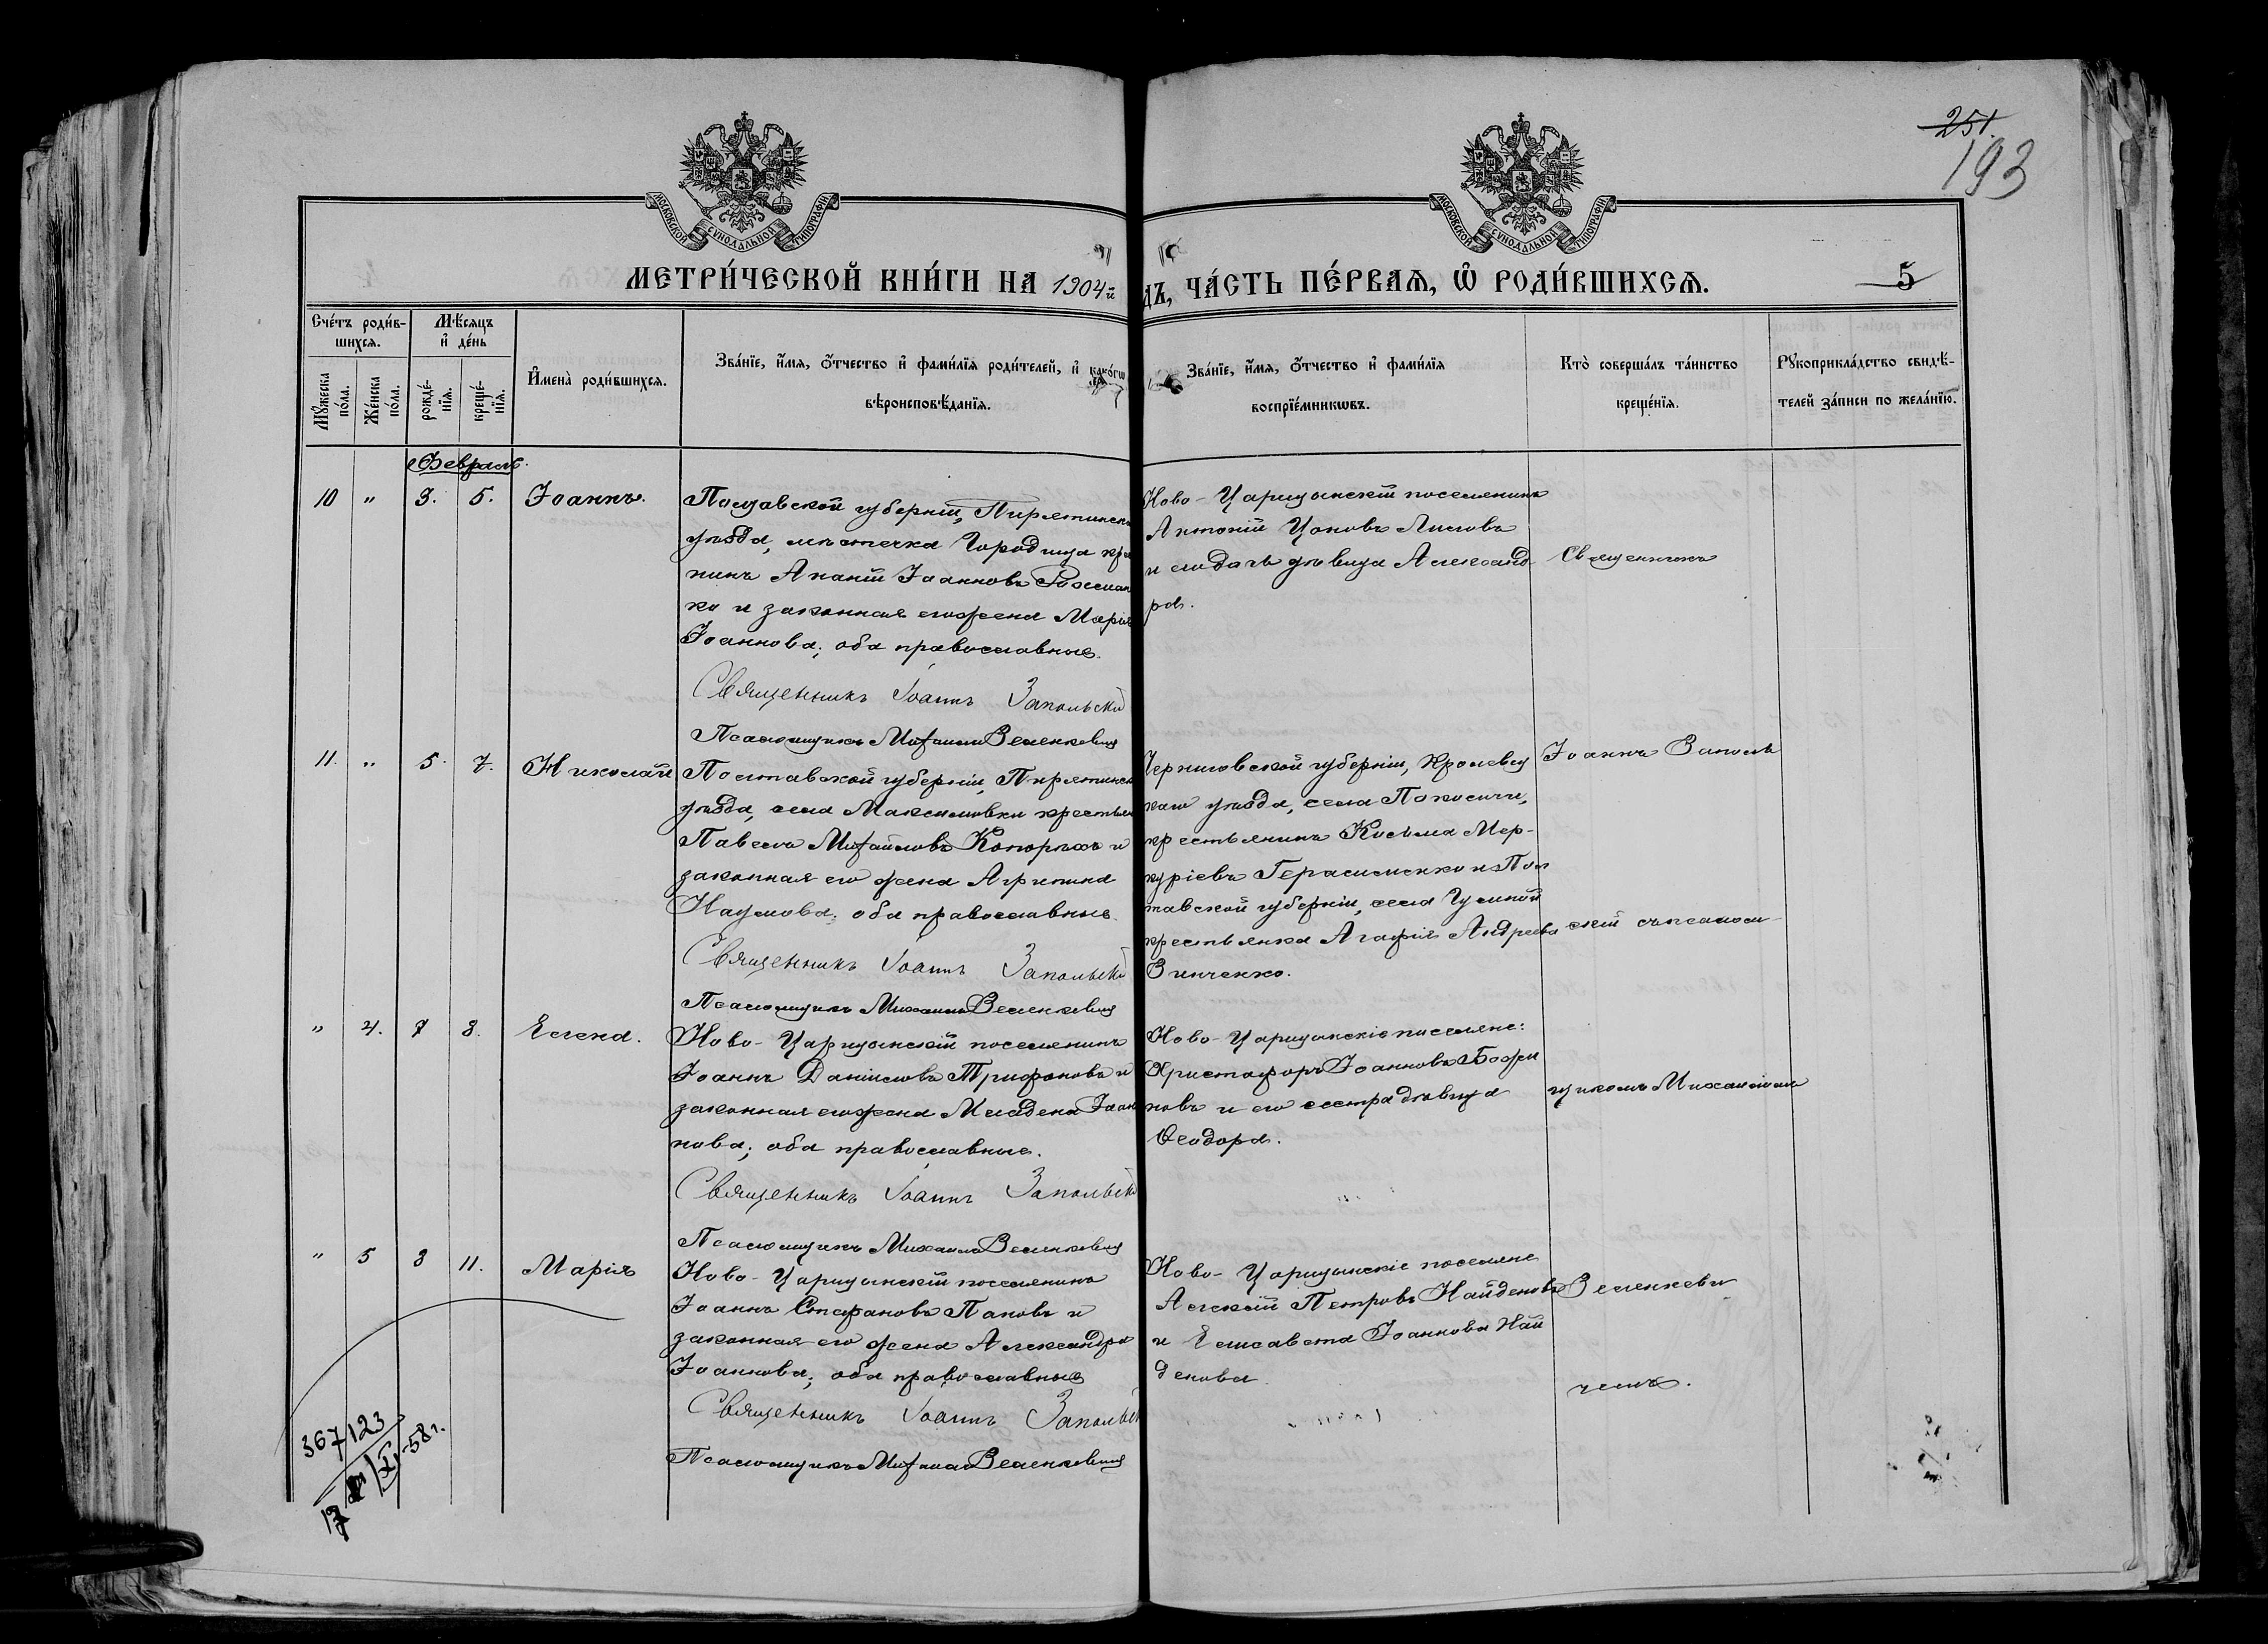 251.
193
МОСКОВСКОЙ СѴНОДАЛЬНОЙ ТИПОГРАФІИ
МОСКОВСКОЙ СѴНОДАЛЬНОЙ ТИПОГРАФІИ
МЕТРИ́ЧЕСКОЙ КНИ́ГИ НА 1904й
ДЪ, ЧА́СТЬ ПЕ́РВАѦ, Ѽ РОДИ́ВШИХСѦ.
5
Сче́тъ роди́в-
шихсѧ.
Мѣ́сяцъ
и҆ де́нь
Мꙋ́жеска
по́ла.
Же́нска
по́ла.
рожде́-
нїѧ.
креще́-
нїѧ.
И҆мена̀ роди́вшихсѧ.
Зва́нїе, и҆́мѧ, ѻ҆́тчество и҆ фами́лїѧ роди́телей, и҆ како́гѡ
вѣроисповѣ́данїѧ.
Зва́нїе, и҆́мѧ, ѻ҆́тчество и҆ фами́лїѧ
воспрїе́мникѡвъ.
Кто̀ соверша́лъ та́инство
креще́нїѧ.
Рꙋкоприкла́дство свидѣ́-
телей за́писи по жела́нїю.
Февраль.
10 " 3. 5. Іоаннъ.
Полтавской губерніи, Пирятинск
уѣзда, мѣстечка Городища кре
нинъ Іоанновъ
ко и законная его жена Марія
Іоаннова; оба православные.
Священникъ Іоаннъ Запольскій
Псаломщикъ Михаилъ Веленкевичъ
Ново-Царицынскій поселянинъ
Антоній Цоновъ
и дѣвица Александ
ра.
Священникъ
11. " 5. 7. Николай
Полтавской губерніи, Пирятинск
уѣзда, села Максимовки крестьян
Павелъ Михайловъ и
законная его жена Агрипина
Наумова; оба православные.
Священникъ Іоаннъ Запольскій
Псаломщикъ Михаилъ Веленкевичъ
Черниговской губерніи, Кролевец
каго уѣзда, села Покошичи,
крестьянинъ Косьма Мер-
куріевъ Герасименко и Пол
тавской губерніи, села
крестьянка Агафія Андреева
Зинченко.
Іоаннъ Заполь
скій съ псалом
" 4. 7 8. Елена.
Ново-Царицынскій поселянинъ
Іоаннъ Даніиловъ Трифоновъ и
законная его жена Младена Іоан
нова; оба православные.
Священникъ Іоаннъ Запольскій
Псаломщикъ Михаилъ Веленкевичъ
Ново-Царицынскіе поселяне:
Христофоръ Іоанновъ Божи
новъ и его сестра дѣвица
Ѳеодора.
щикомъ Михаиломъ
" 5 8 11. Марія
Ново-Царицынскій поселянинъ
Іоаннъ Стефановъ Пановъ и
законная его жена Александра
Іоаннова; оба православные
Священникъ Іоаннъ Запольскій
Псаломщикъ Михаилъ Веленкевичъ
Ново-Царицынскіе поселяне
Алексій Петровъ Найденовъ
и Елисавета Іоаннова Най
денова
Веленкеви
чемъ.
367/123
58г.